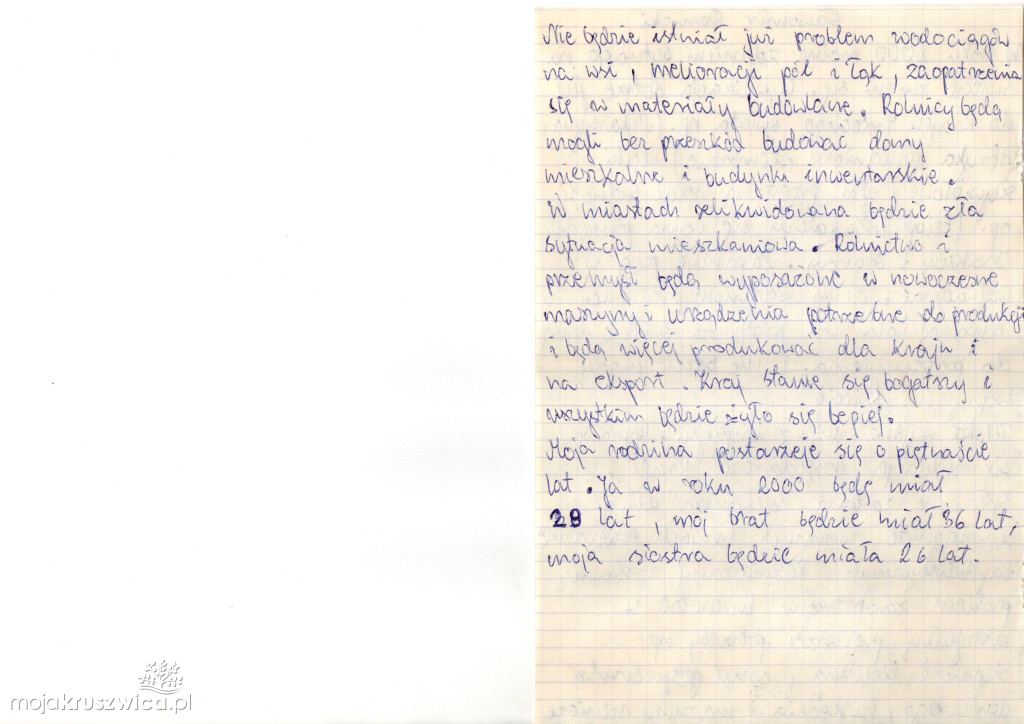 Nie będzie istniał już problem wodociągów
na wsi, melioracji pól i łąk, zaopatrzenia
się w materiały budowlane. Rolnicy będą
mogli bez przeszkód budować domy
mieszkalne i budynki inwentarskie.
W miastach zelikwidowana będzie zła
sytuacja mieszkaniowa. Rolnictwo i
przemysł będą wyposażone w nowoczesne
maszyny i urządzenia potrzebne do produkcji
i będą więcej produkować dla kraju i
na eksport. Kraj stanie się bogatszy i
wszystkim będzie żyło się lepiej.
Moja rodzina postarzeje się o piętnaście
lat. Ja w roku 2000 będę miał
28 lat, mój brat będzie miał 36 lat,
moja siostra będzie miała 26 lat.
mojakruszwica.pl